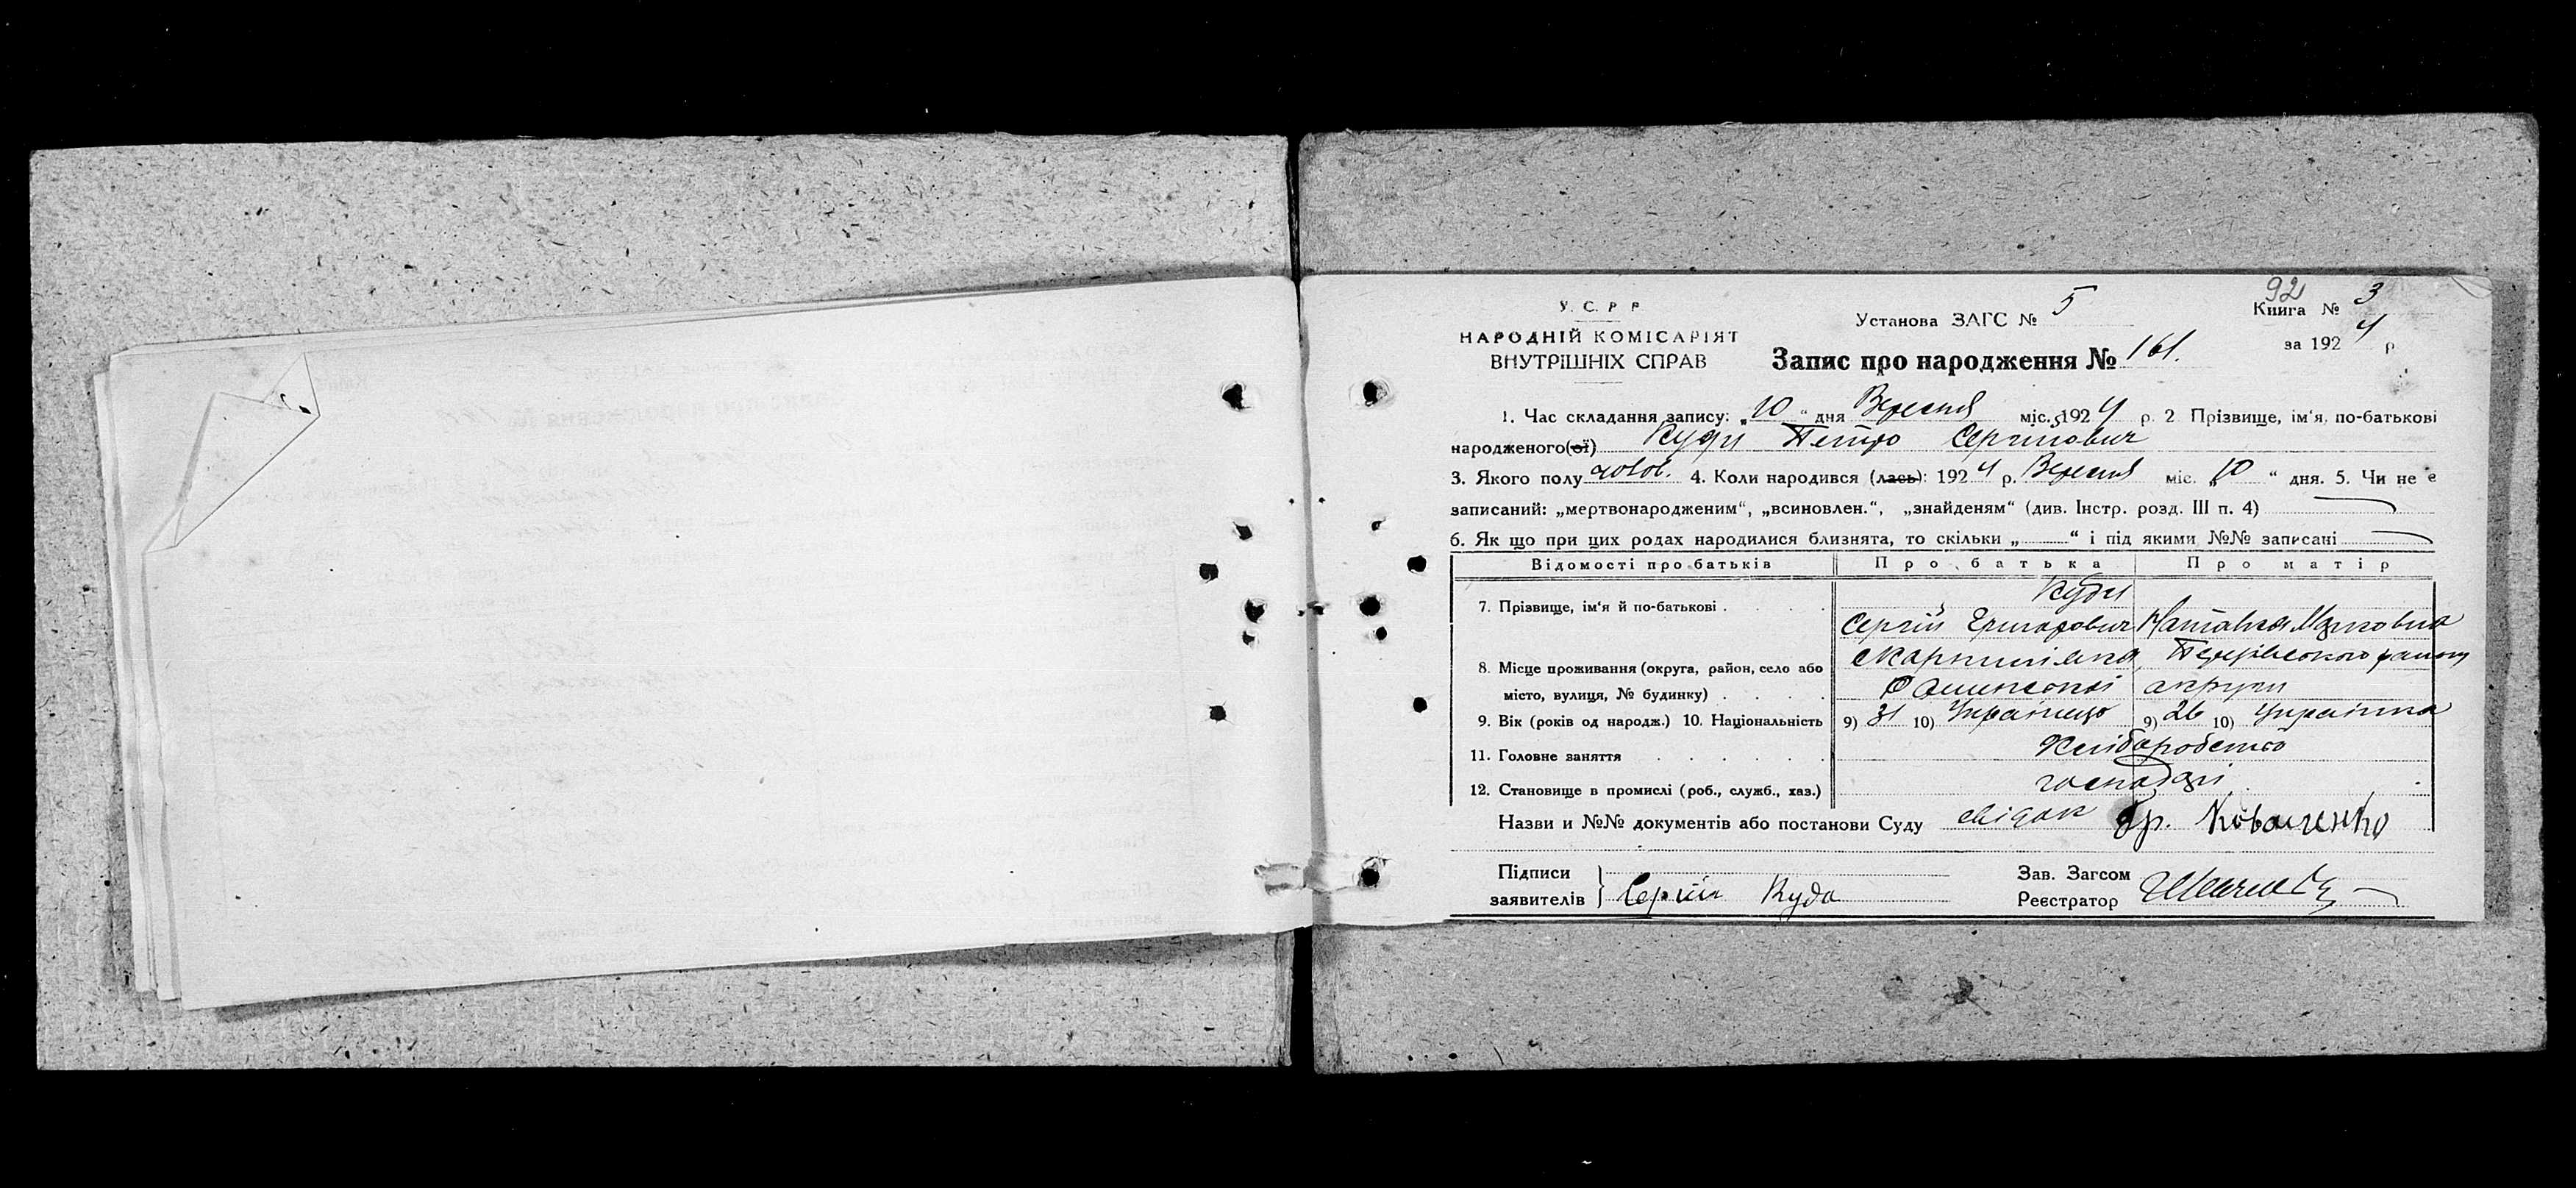 92
У. С. Р Р
Установа ЗАГС № 5
Книга № 3
НАРОДНІЙ КОМІСАРІЯТ
ВНУТРІШНІХ СПРАВ
за 1924 р
Запис про народження № 161.
1. Час складання запису: „10“ дня Вересня міс. 1924 р. 2 Прізвище, ім‘я, по-батькові
народженого(ої) Куди Петро Сергійович
3. Якого полу чолов. 4. Коли народився (лась): 1924 р. Вересня міс. „10“ дня. 5. Чи не є
записаний: „мертвонародженим“, „всиновлен.“, „знайденям“ (див. Інстр. розд. III п. 4)
6. Як що при цих родах народилися близнята, то скільки „ “ і під якими №№ записані
Відомості про батьків Про батька Про матір
7. Прізвище, ім‘я й по-батькові Куди
Сергій Григорович Наталка Марковна
8. Місце проживання (округа, район, село або
місто, вулиця, № будинку) района
Роменської округи
9. Вік (років од народж.) 10. Національність 9) 31 10) Українець 9) 26 10) Українка
11. Головне заняття Хліборобство
12. Становище в промислі (роб., служб., хаз.) господарі
Назви и №№ документів або постанови Суду свідок Гр. Коваленко
Підписи
заявителів Сергій Куда
Зав. Загсом
Реєстратор